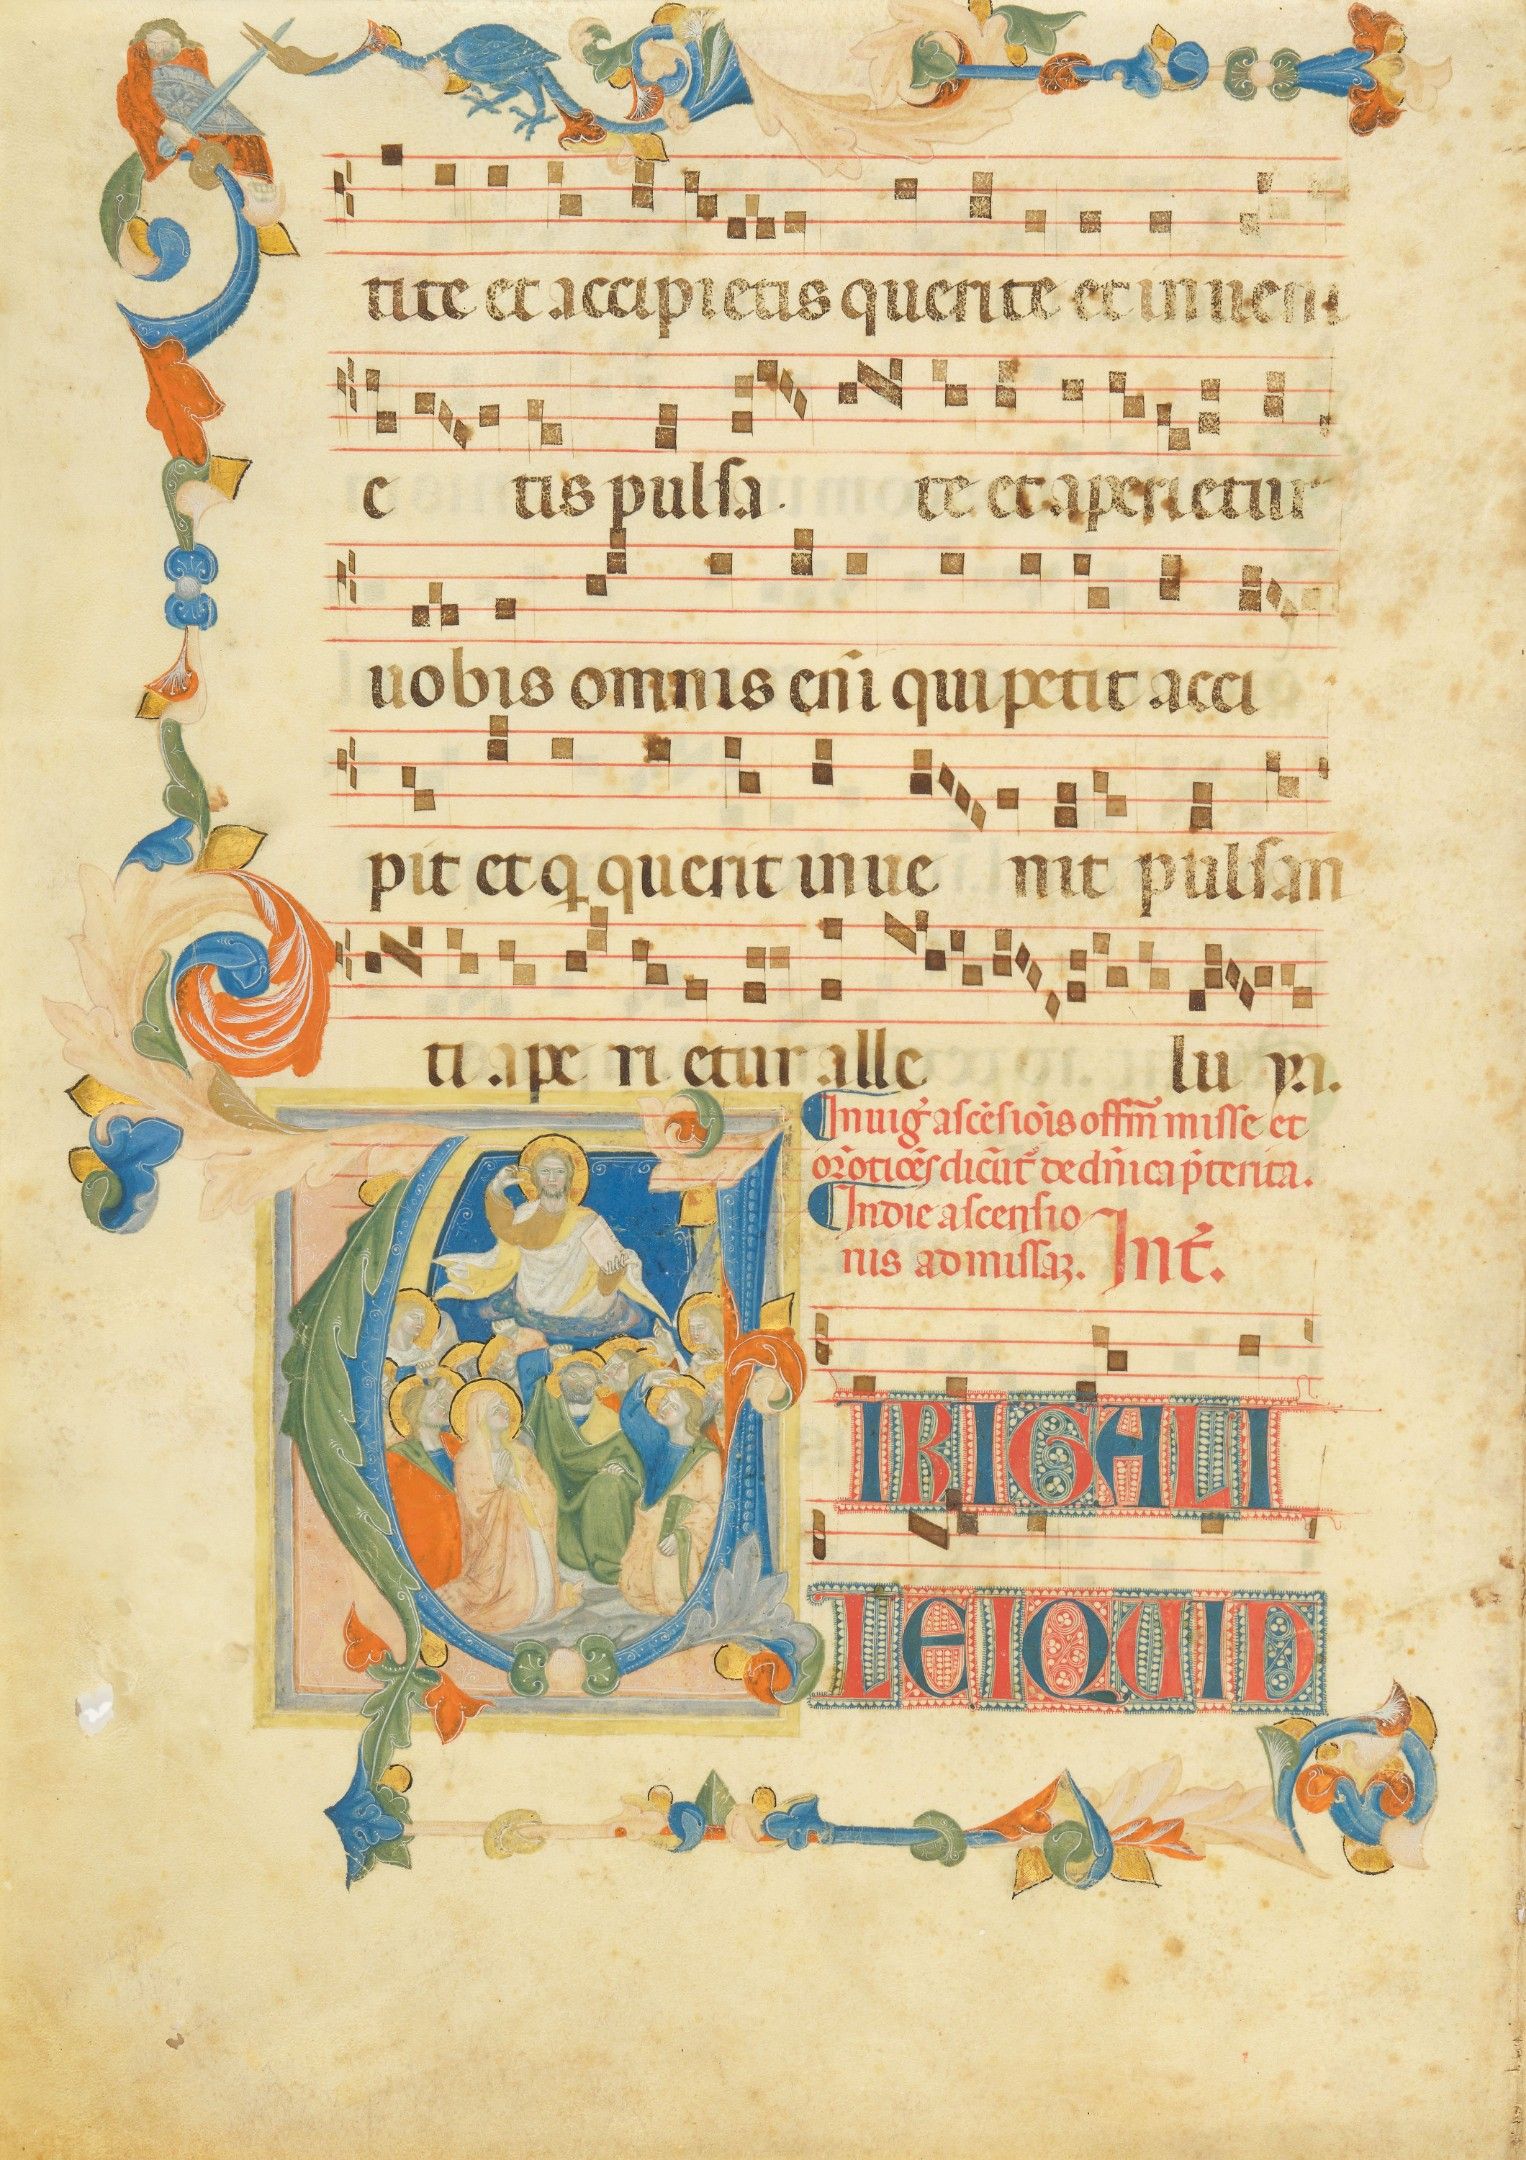 tite et accipietis querite et inueni
e tis pulsa te et aperietur
uobis omnis eni̅ qui petit acci
pit et q querit inue nit pulsan
ti ape ri etur alle lu ya.
In uig̓ asce̅sio̅is offm̅ misse et
dicu̅t̓ de dn̅ica p̓terita.
In die ascensio
nis ad missaʒ. Int̓.
V
IRIGALI
LEIQUID